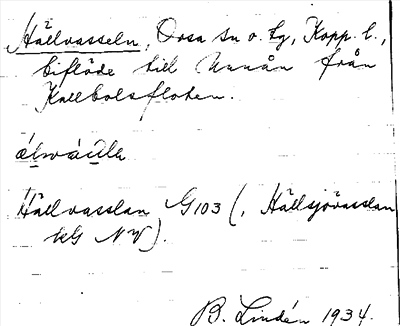 Hällvasseln, Orsa sn o. tg, Kopp. l.,
biflöde till Unnån från
Kallbolsfloten.
Hällvasslan G103 (, Hällsjövasslan
kG NV).
B. Lindén 1934.